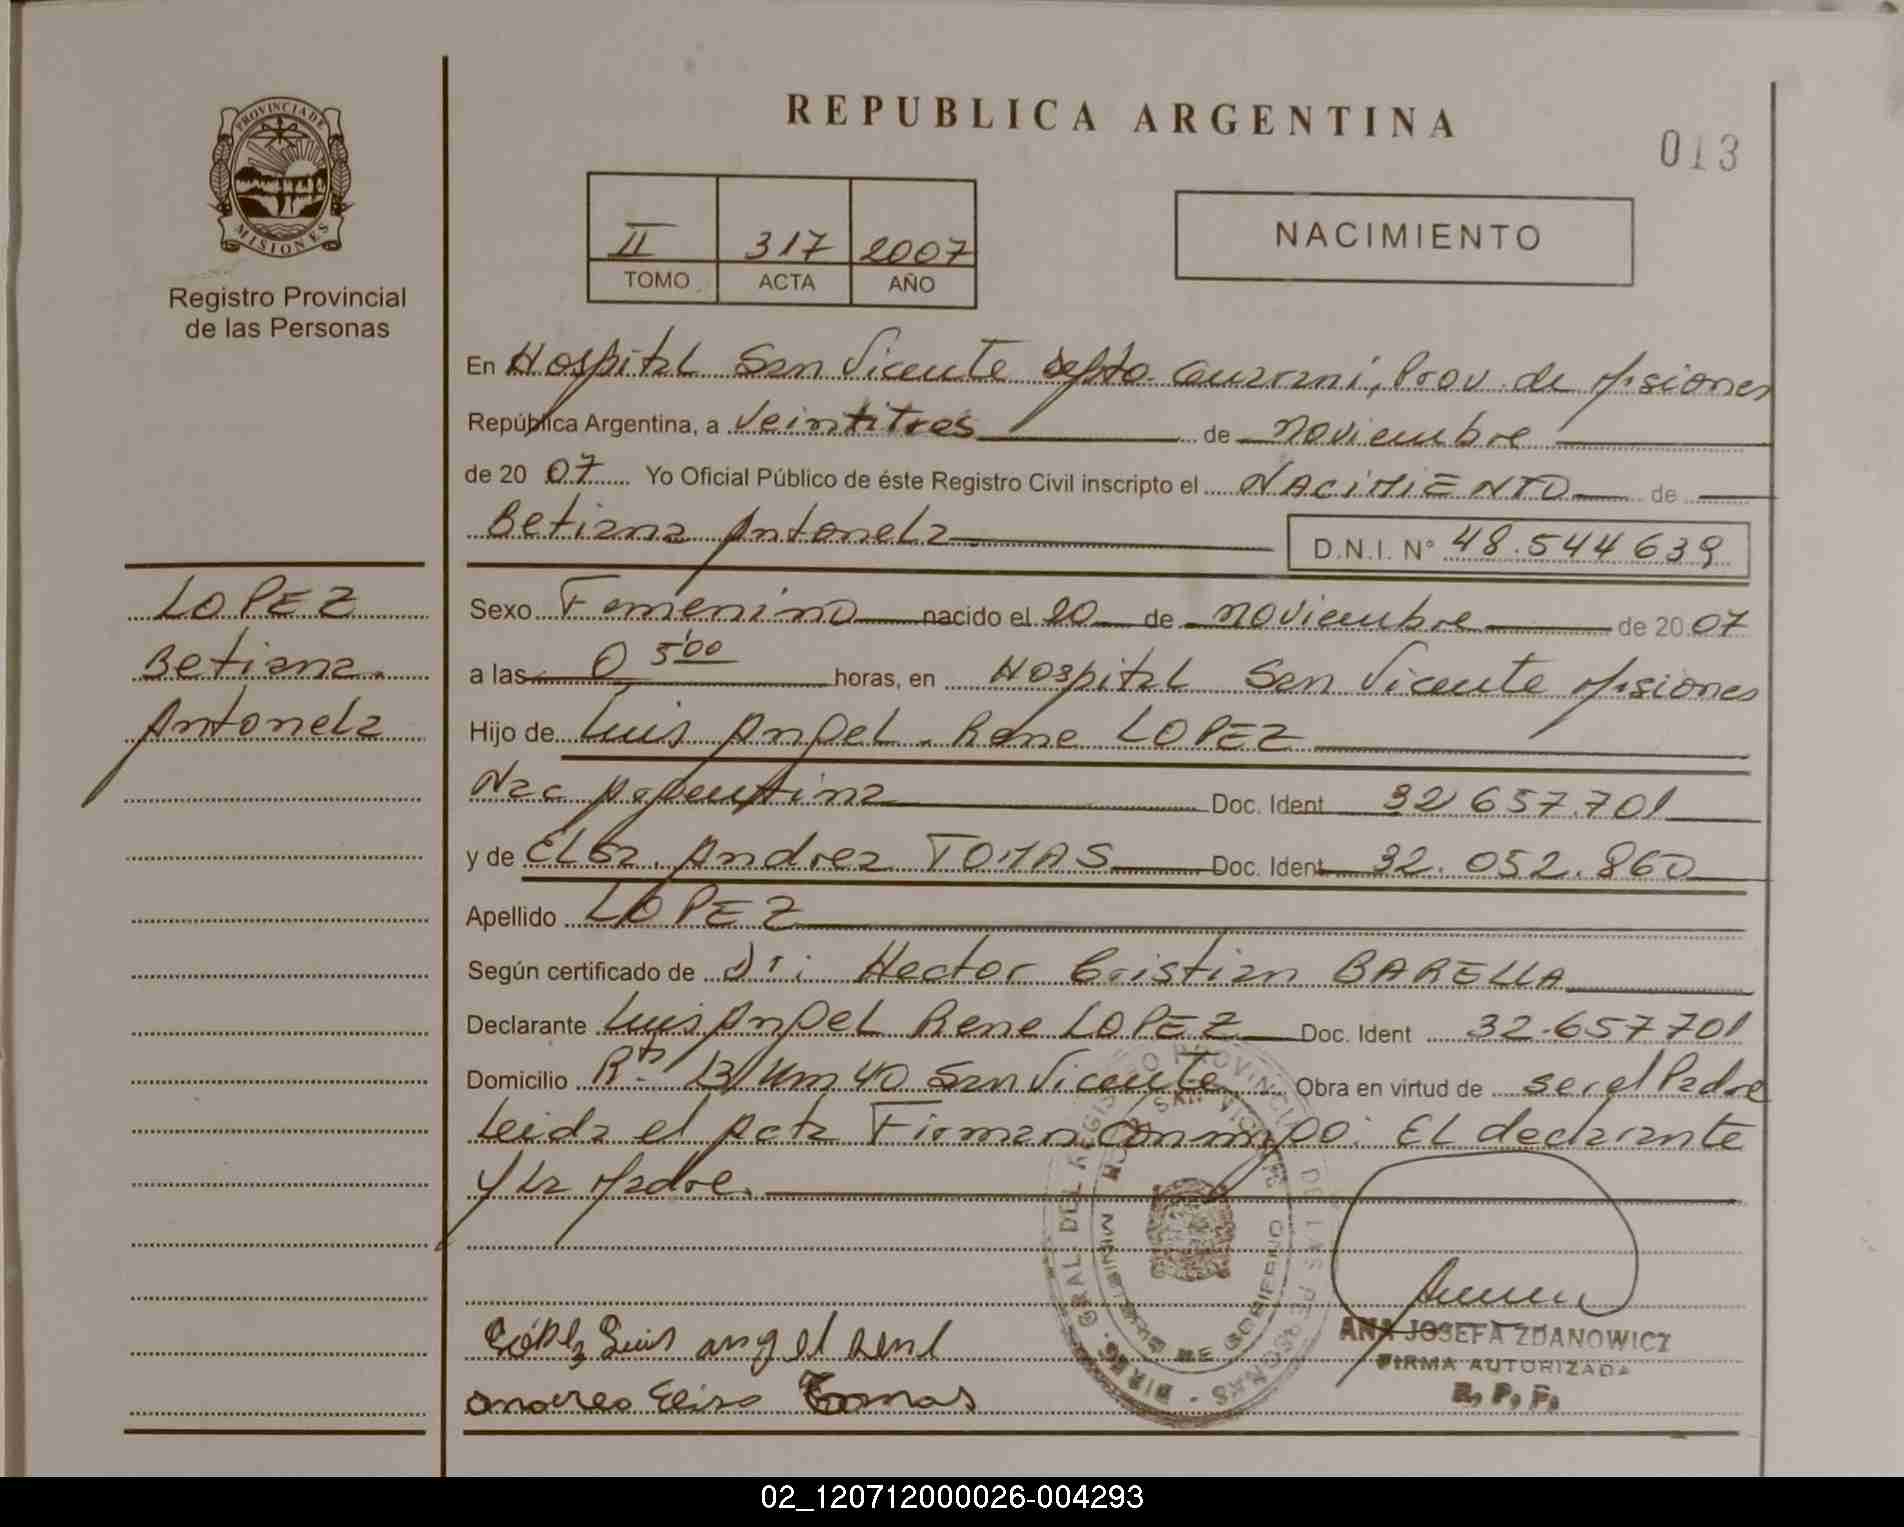 PROVINCIA DE
MISIONES
Registro Provincial
de las Personas
REPUBLICA ARGENTINA
013
II 317 2007
TOMO ACTA AÑO
NACIMIENTO
En Hospital San Vicente depto Guarani, Prov. de Misiones
República Argentina, a veintitres de noviembre
de 20 07 Yo Oficial Público de éste Registro Civil inscripto el NACIMIENTO de
Betiana Antonela D.N.I. N° 48.544639
LOPEZ
Betiana
Antonela
Sexo Femenino nacido el 20 de noviembre de 20 07
a las 05:00 horas, en Hospital San Vicente Misiones
Hijo de Luis Angel Rene LOPEZ
Nac Argentina Doc. Ident 32657.701
y de Andrea TOMAS Doc. Ident 32.052.860
Apellido LOPEZ
Según certificado de Dr: Hector Cristian BARELLA
Declarante Luis Angel Rene LOPEZ Doc. Ident 32.657701
Domicilio Rta 13 Km 40 San Vicente Obra en virtud de ser el Padre
Leida el Acta Firman conmigo: EL declarante
y La Madre.
Luis angel
Tomas
ANA JOSEFA ZDANOWICZ
FIRMA AUTORIZADA
R. P. P.
02_120712000026-004293